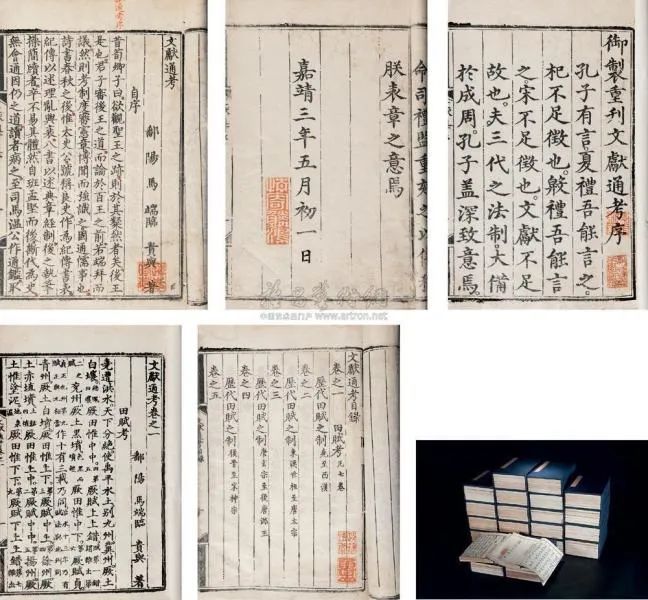 文獻通考
鄱陽馬端臨貴與著
自序
昔荀卿子曰欲觀聖王之跡則於其粲然者矣後王
是也君子審後王之道而論於百王之前若端拜而
議然則考制度審憲章博聞而強識之固通儒事也
詩書春秋之後惟太史公號稱良史作為紀傳書表
紀傳以述理亂興衰八書以述典章經制後之執筆
操簡牘者卒不易其體然自班孟堅而後斷代為史
無會通因仍之道讀者病之至司馬溫公作通鑑取
命司禮監重刻之以傳
朕表章之意焉
嘉靖三年五月初一日
御製重刊文獻通考序
孔子有言夏禮吾能言之
杞不足徵也殷禮吾能言
之宋不足徵也文獻不足
故也夫三代之法制大備
於成周孔子蓋深致意焉
www.artron.net
文獻通考卷之一
鄱陽馬端臨貴與著
田賦考
堯遭洪水天下分絕使禹平水土別九州冀州厥土
白壤厥田惟中中厥賦上上錯
兗州厥土黑墳厥田惟中下厥賦貞
作十有三載乃同
青州厥土白墳厥田惟上下厥賦中上徐州厥
土赤埴墳厥田惟上中厥賦中中揚州厥
土惟塗泥厥田惟下下厥賦下上上錯
文獻通考目錄
卷之一
田賦考凡七卷
歷代田賦之制堯至西漢
卷之二
歷代田賦之制東漢世祖至唐太宗
卷之三
歷代田賦之制唐玄宗至後唐潞王
卷之四
歷代田賦之制後晉至宋神宗
卷之五